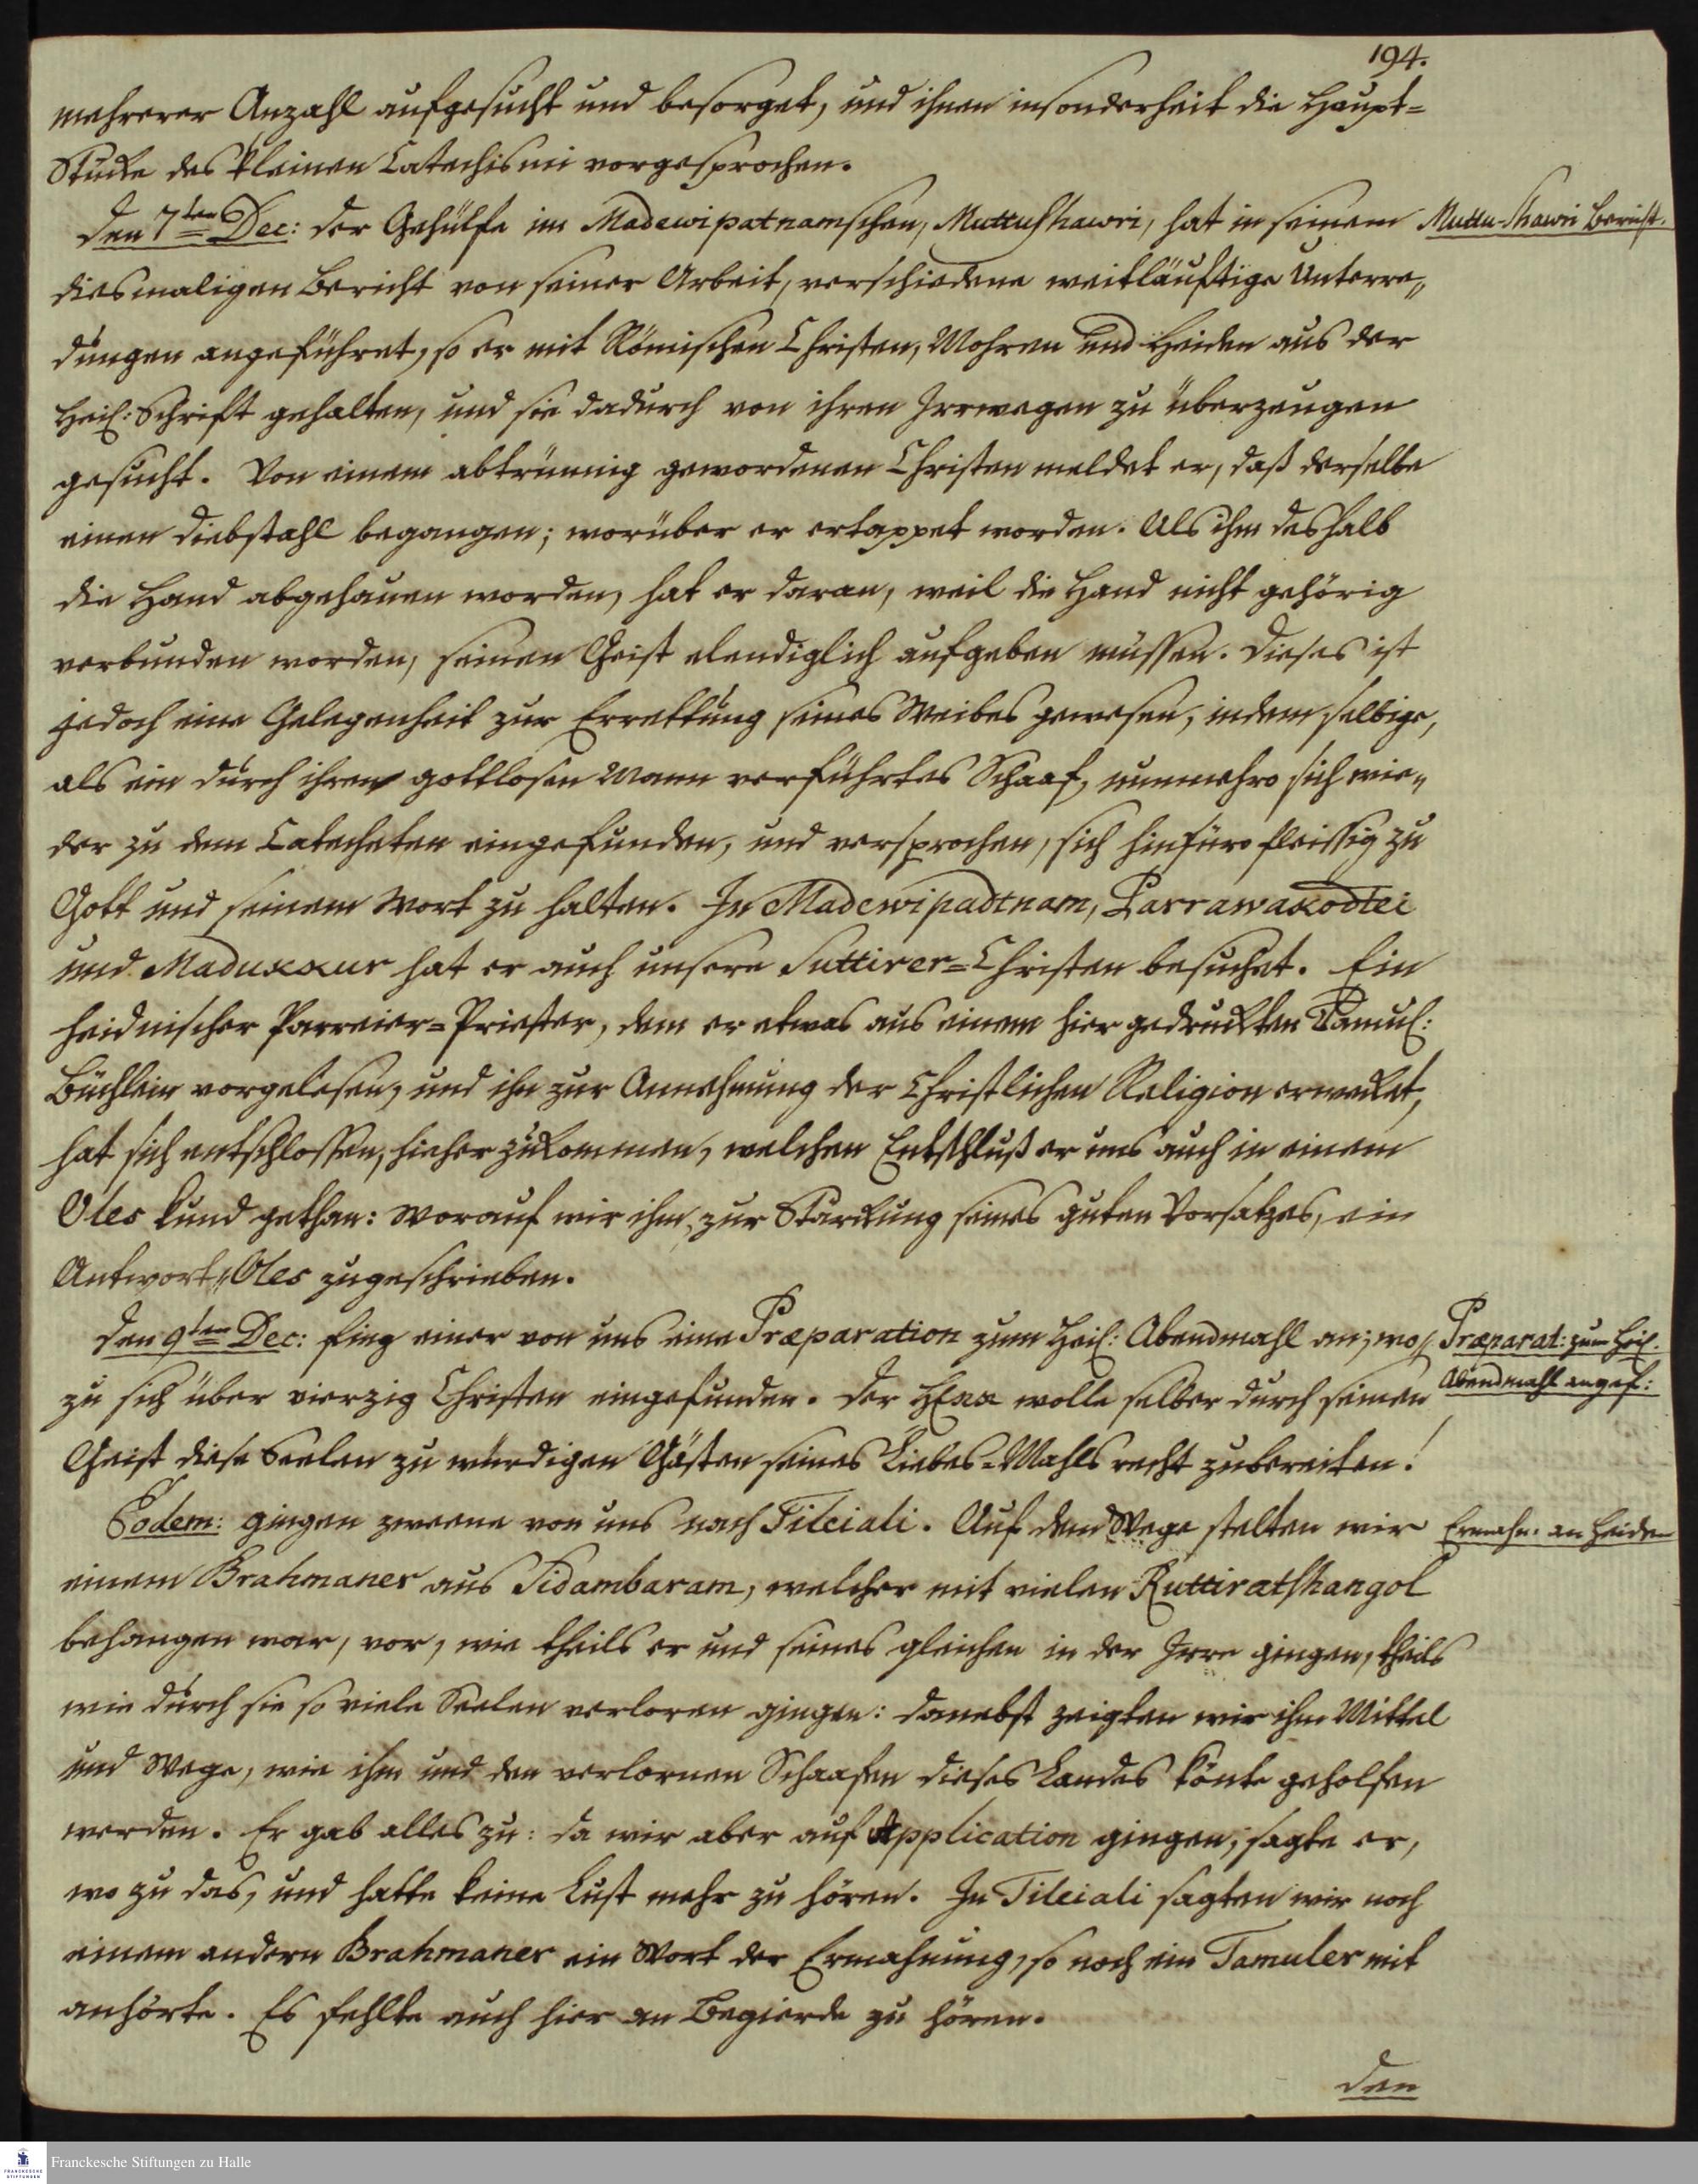 194.
mehrerer Anzahl aufgesucht und besorget, und ihnen insonderheit die Haupt=
Stücke des kleinen Catechismi vorgesprochen.
den 7ten Dec: der Gehülfe im Madewipatnamschen, Muttushawri, hat in seinem
Muttu-Shawri Bericht.
diesmaligen Bericht von seiner Arbeit, verschiedene weitläuftige Unterre„
dungen angeführet, so er mit Römischen Christen, Mohren und Heiden aus der
Heil: Schrift gehalten, und sie dadurch von ihren Irrwegen zu überzeugen
gesucht. Von einem abtrünnig gewordenen Christen meldet er, daß derselbe
einen Diebstahl begangen; worüber er ertappet worden. Als ihm deshalb
die Hand abgehauen worden, hat er daran, weil die Hand nicht gehörig
verbunden worden, seinen Geist elendiglich aufgeben müssen. Dieses ist
jedoch eine Gelegenheit zur Errettung seines Weibes gewesen, indem selbige,
als ein durch ihren gottlosen Mann verführtes Schaaf, nunmehro sich wie„
der zu dem Catecheten eingefunden, und versprochen, sich hinfüro fleissig zu
Gott und seinem Wort zu halten. In Madewipadtnam, Parrawakodtei
und Madukkur hat er auch unsere Suttirer=Christen besuchet. Ein
heidnischer Parreier=Priester, dem er etwas aus einem hier gedruckten Tamul:
Büchlein vorgelesen, und ihn zur Annehmung der Christlichen Religion erwecket,
hat sich entschlossen, hieher zukommen, welchen Entschluß er uns auch in einem
Oles kund gethan: worauf wir ihm, zur Stärckung seines guten Vorsatzes, ein
Antwort„Oles zugeschrieben.
den 9ten Dec: fing einer von uns eine Præparation zum Heil: Abendmahl an; wo„
Præparat: zum Heil.
Abendmahl angef:
zu sich über vierzig Christen eingefunden. Der HErr wolle selber durch seinen
Geist diese Seelen zu würdigen Gästen seines Liebes=Mahls recht zubereiten!
Eodem: gingen zweene von uns nach Tilciali. Auf dem Wege stelten wir
Ermahn. an Heiden
einem Brahmaner aus Sidambaram, welcher mit vielen Ruttiratshangol
behangen war, vor, wie theils er und seines gleichen in der Irre gingen, theils
wie durch sie so viele Seelen verloren gingen: danebst zeigten wir ihm Mittel
und Wege, wie ihm und den verlornen Schaafen dieses Landes könte geholfen
werden. Er gab alles zu: da wir aber auf Application gingen, sagte er,
wo zu das, und hatte keine Lust mehr zu hören. In Tilciali sagten wir noch
einem andern Brahmaner ein Wort der Ermahnung, so noch ein Tamuler mit
anhörte. Es fehlte auch hier an Begierde zu hören.
den
Franckesche Stiftungen zu Halle
FRANCKESCHE
STIFTUNGEN